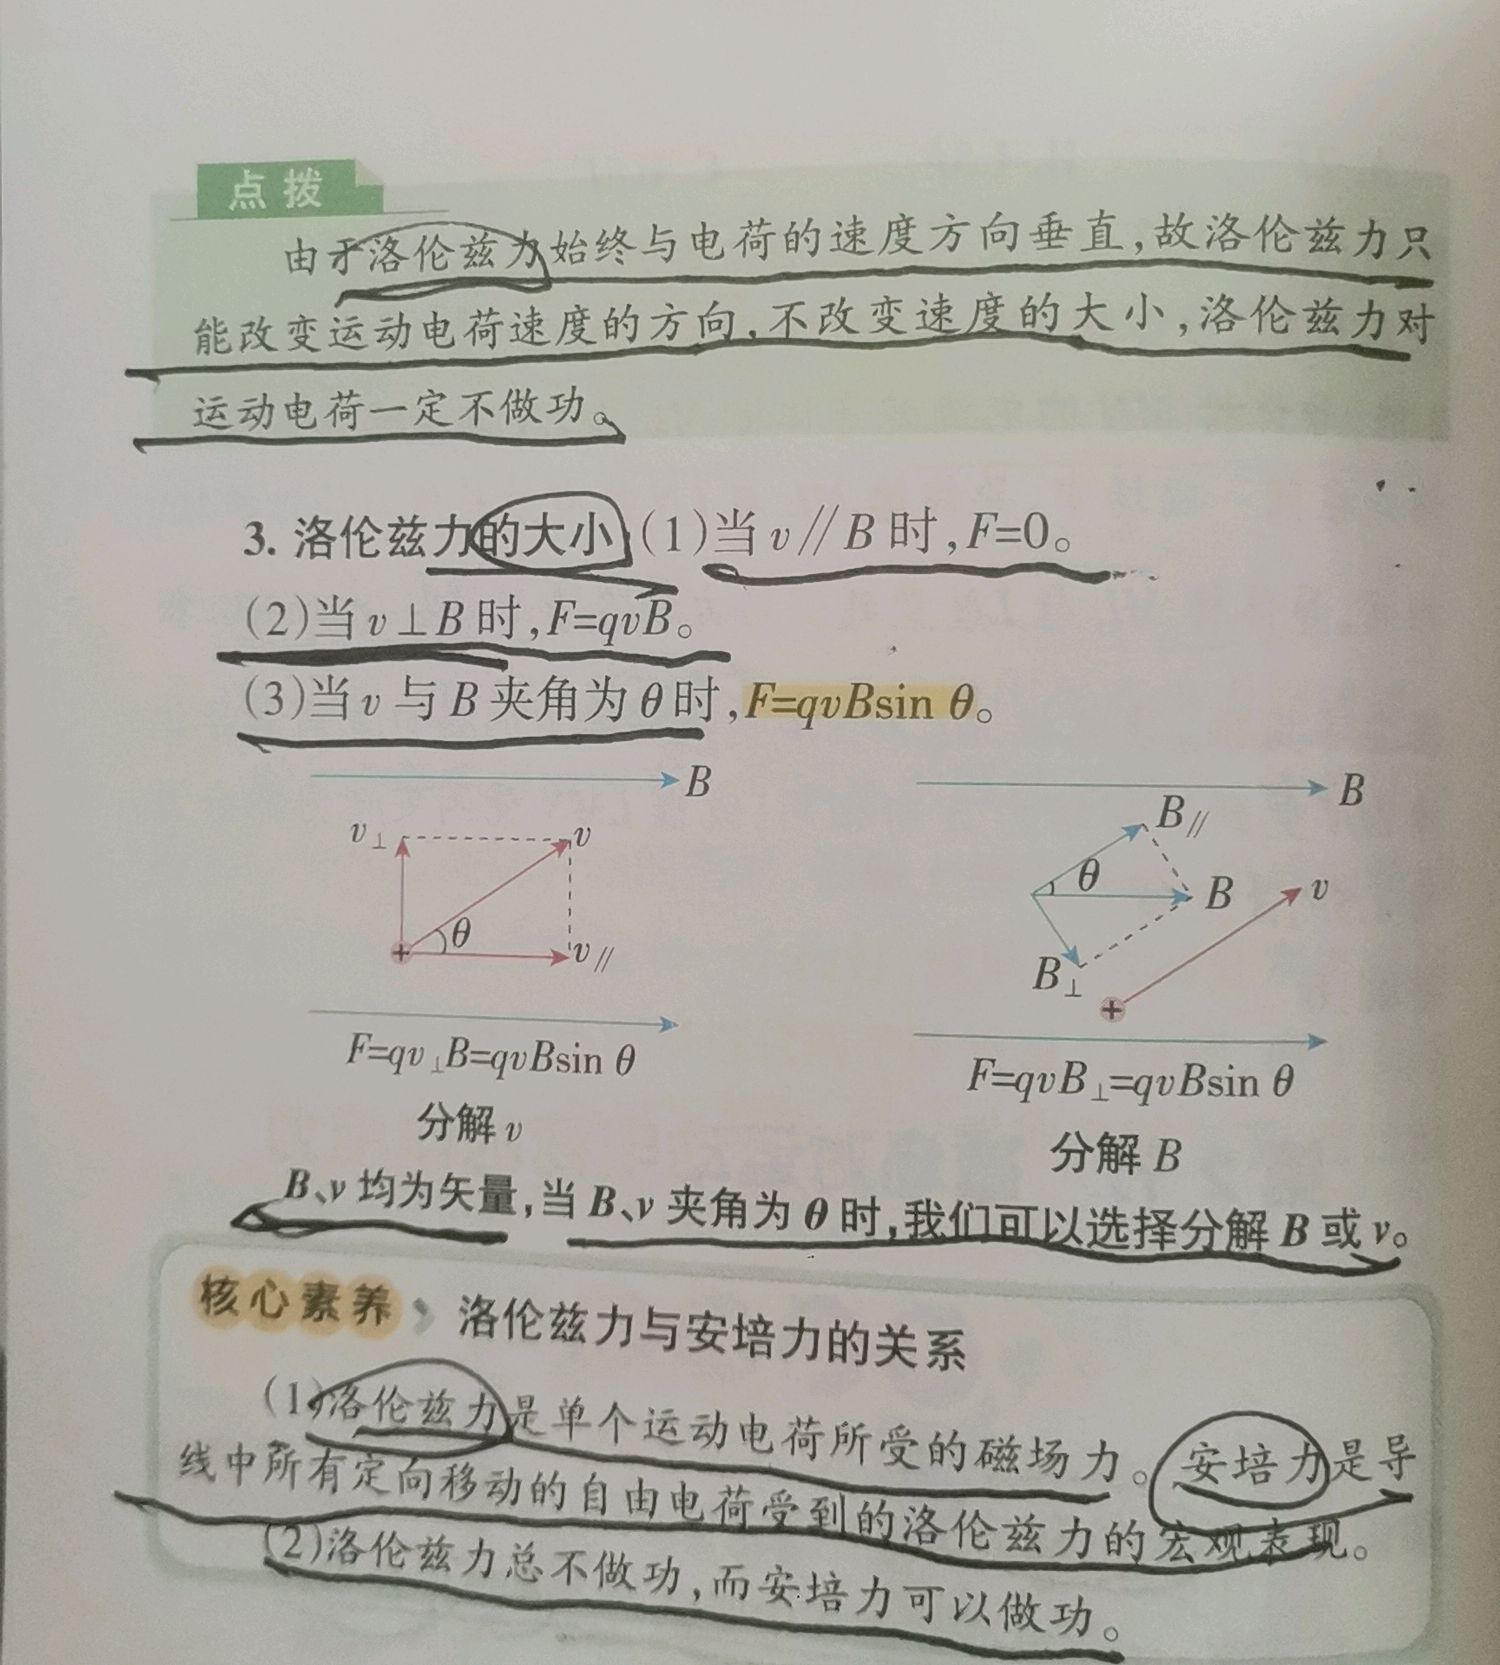 点拨
由于洛伦兹力始终与电荷的速度方向垂直,故洛伦兹力只
能改变运动电荷速度的方向,不改变速度的大小,洛伦兹力对
运动电荷一定不做功。
3. 洛伦兹力的大小 (1)当 v∥B 时,F=0。
(2)当 v⊥B 时,F=qvB。
(3)当 v 与 B 夹角为 θ 时,F=qvBsin θ。
B
v⊥ v
θ
v∥
F=qv⊥B=qvBsin θ
分解 v
B
B∥
θ
B v
B⊥
F=qvB⊥=qvBsin θ
分解 B
B、v 均为矢量,当 B、v 夹角为 θ 时,我们可以选择分解 B 或 v。
核心素养 洛伦兹力与安培力的关系
(1)洛伦兹力是单个运动电荷所受的磁场力。安培力是导
线中所有定向移动的自由电荷受到的洛伦兹力的宏观表现。
(2)洛伦兹力总不做功,而安培力可以做功。